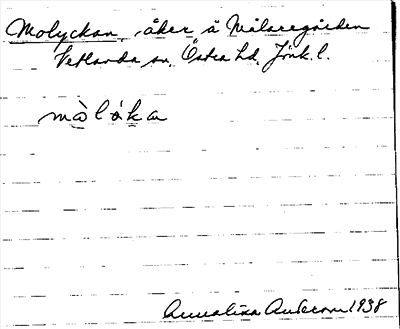 Molyckan, åker å Målaregården
Vetlanda sn. Östra hd. Jönk. l.
màlóka
Annalisa Anderson 1938